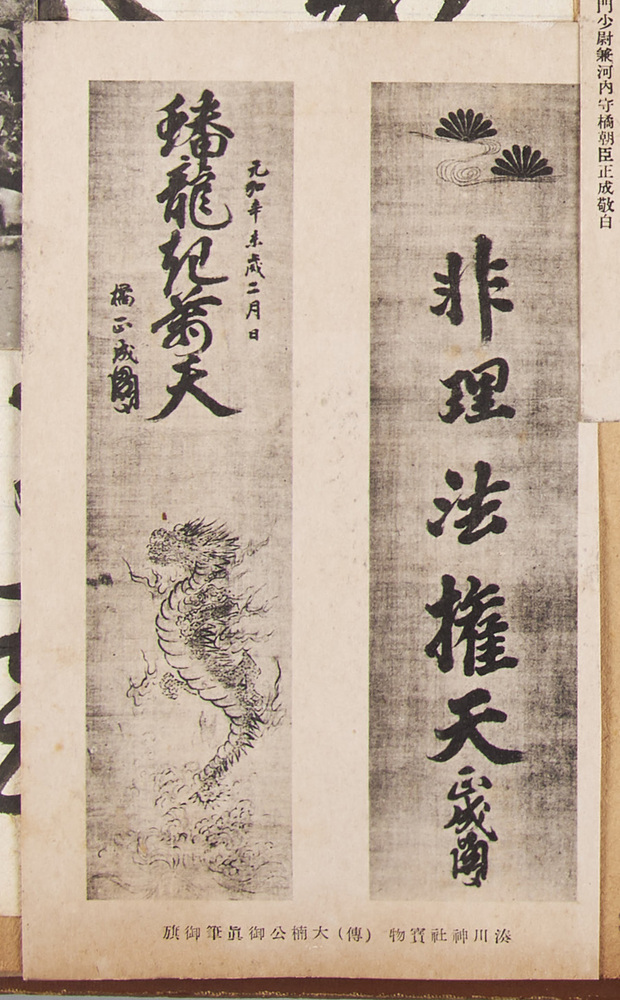 門少尉兼河内守橘朝臣正成敬白
非理法權天
正成
元弘辛未歳二月日
蟠龍起天
橘正成
湊川神社寶物 (傳)大楠公御眞筆御旗